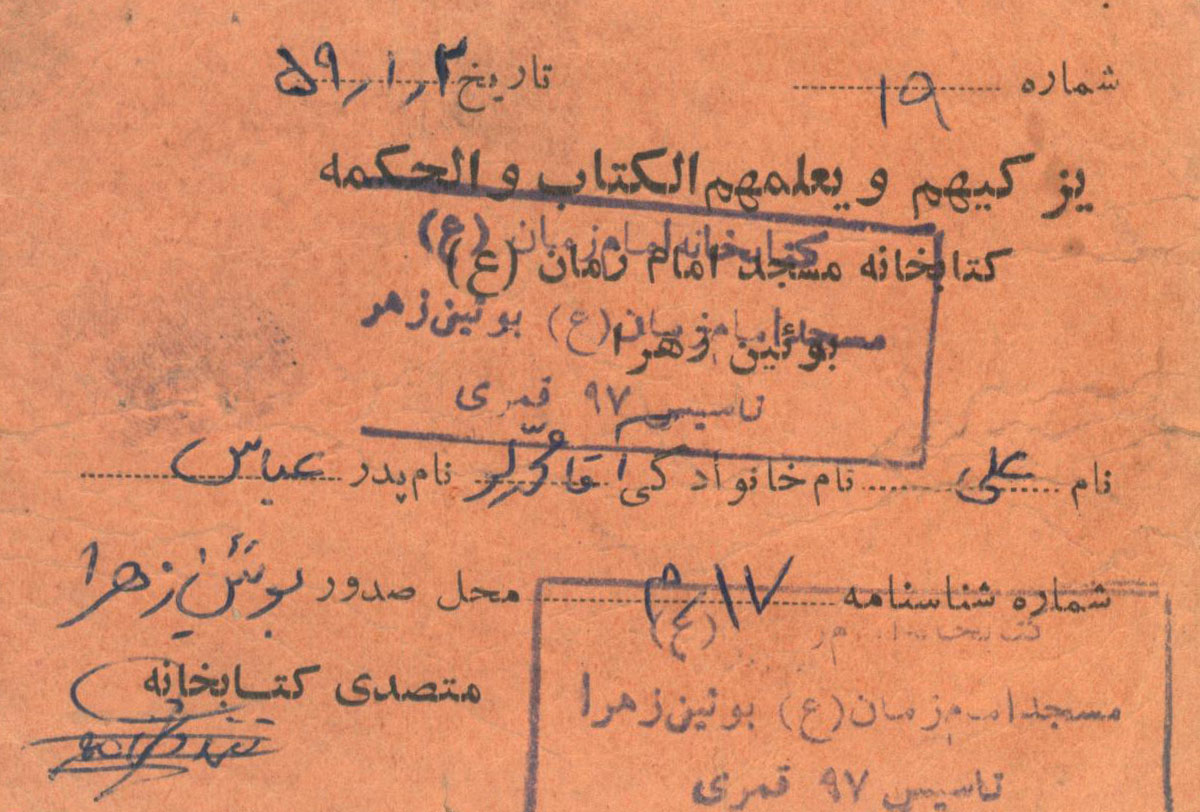 شماره ۱۹ تاریخ ۵۹٫۱٫۲
یزکیهم و یعلمهم الکتاب و الحکمه
کتابخانه امام زمان (ع)
کتابخانه مسجد امام زمان (ع)
مسجد امام زمان (ع) بوئین زهرا
بوئین زهرا
تاسیس ۹۷ قمری
نام علی نام خانوادگی نام پدر عباس
شماره شناسنامه محل صدور بوئین زهرا
کتابخانه (ع)
متصدی کتابخانه
مسجد امام زمان (ع) بوئین زهرا
تاسیس ۹۷ قمری